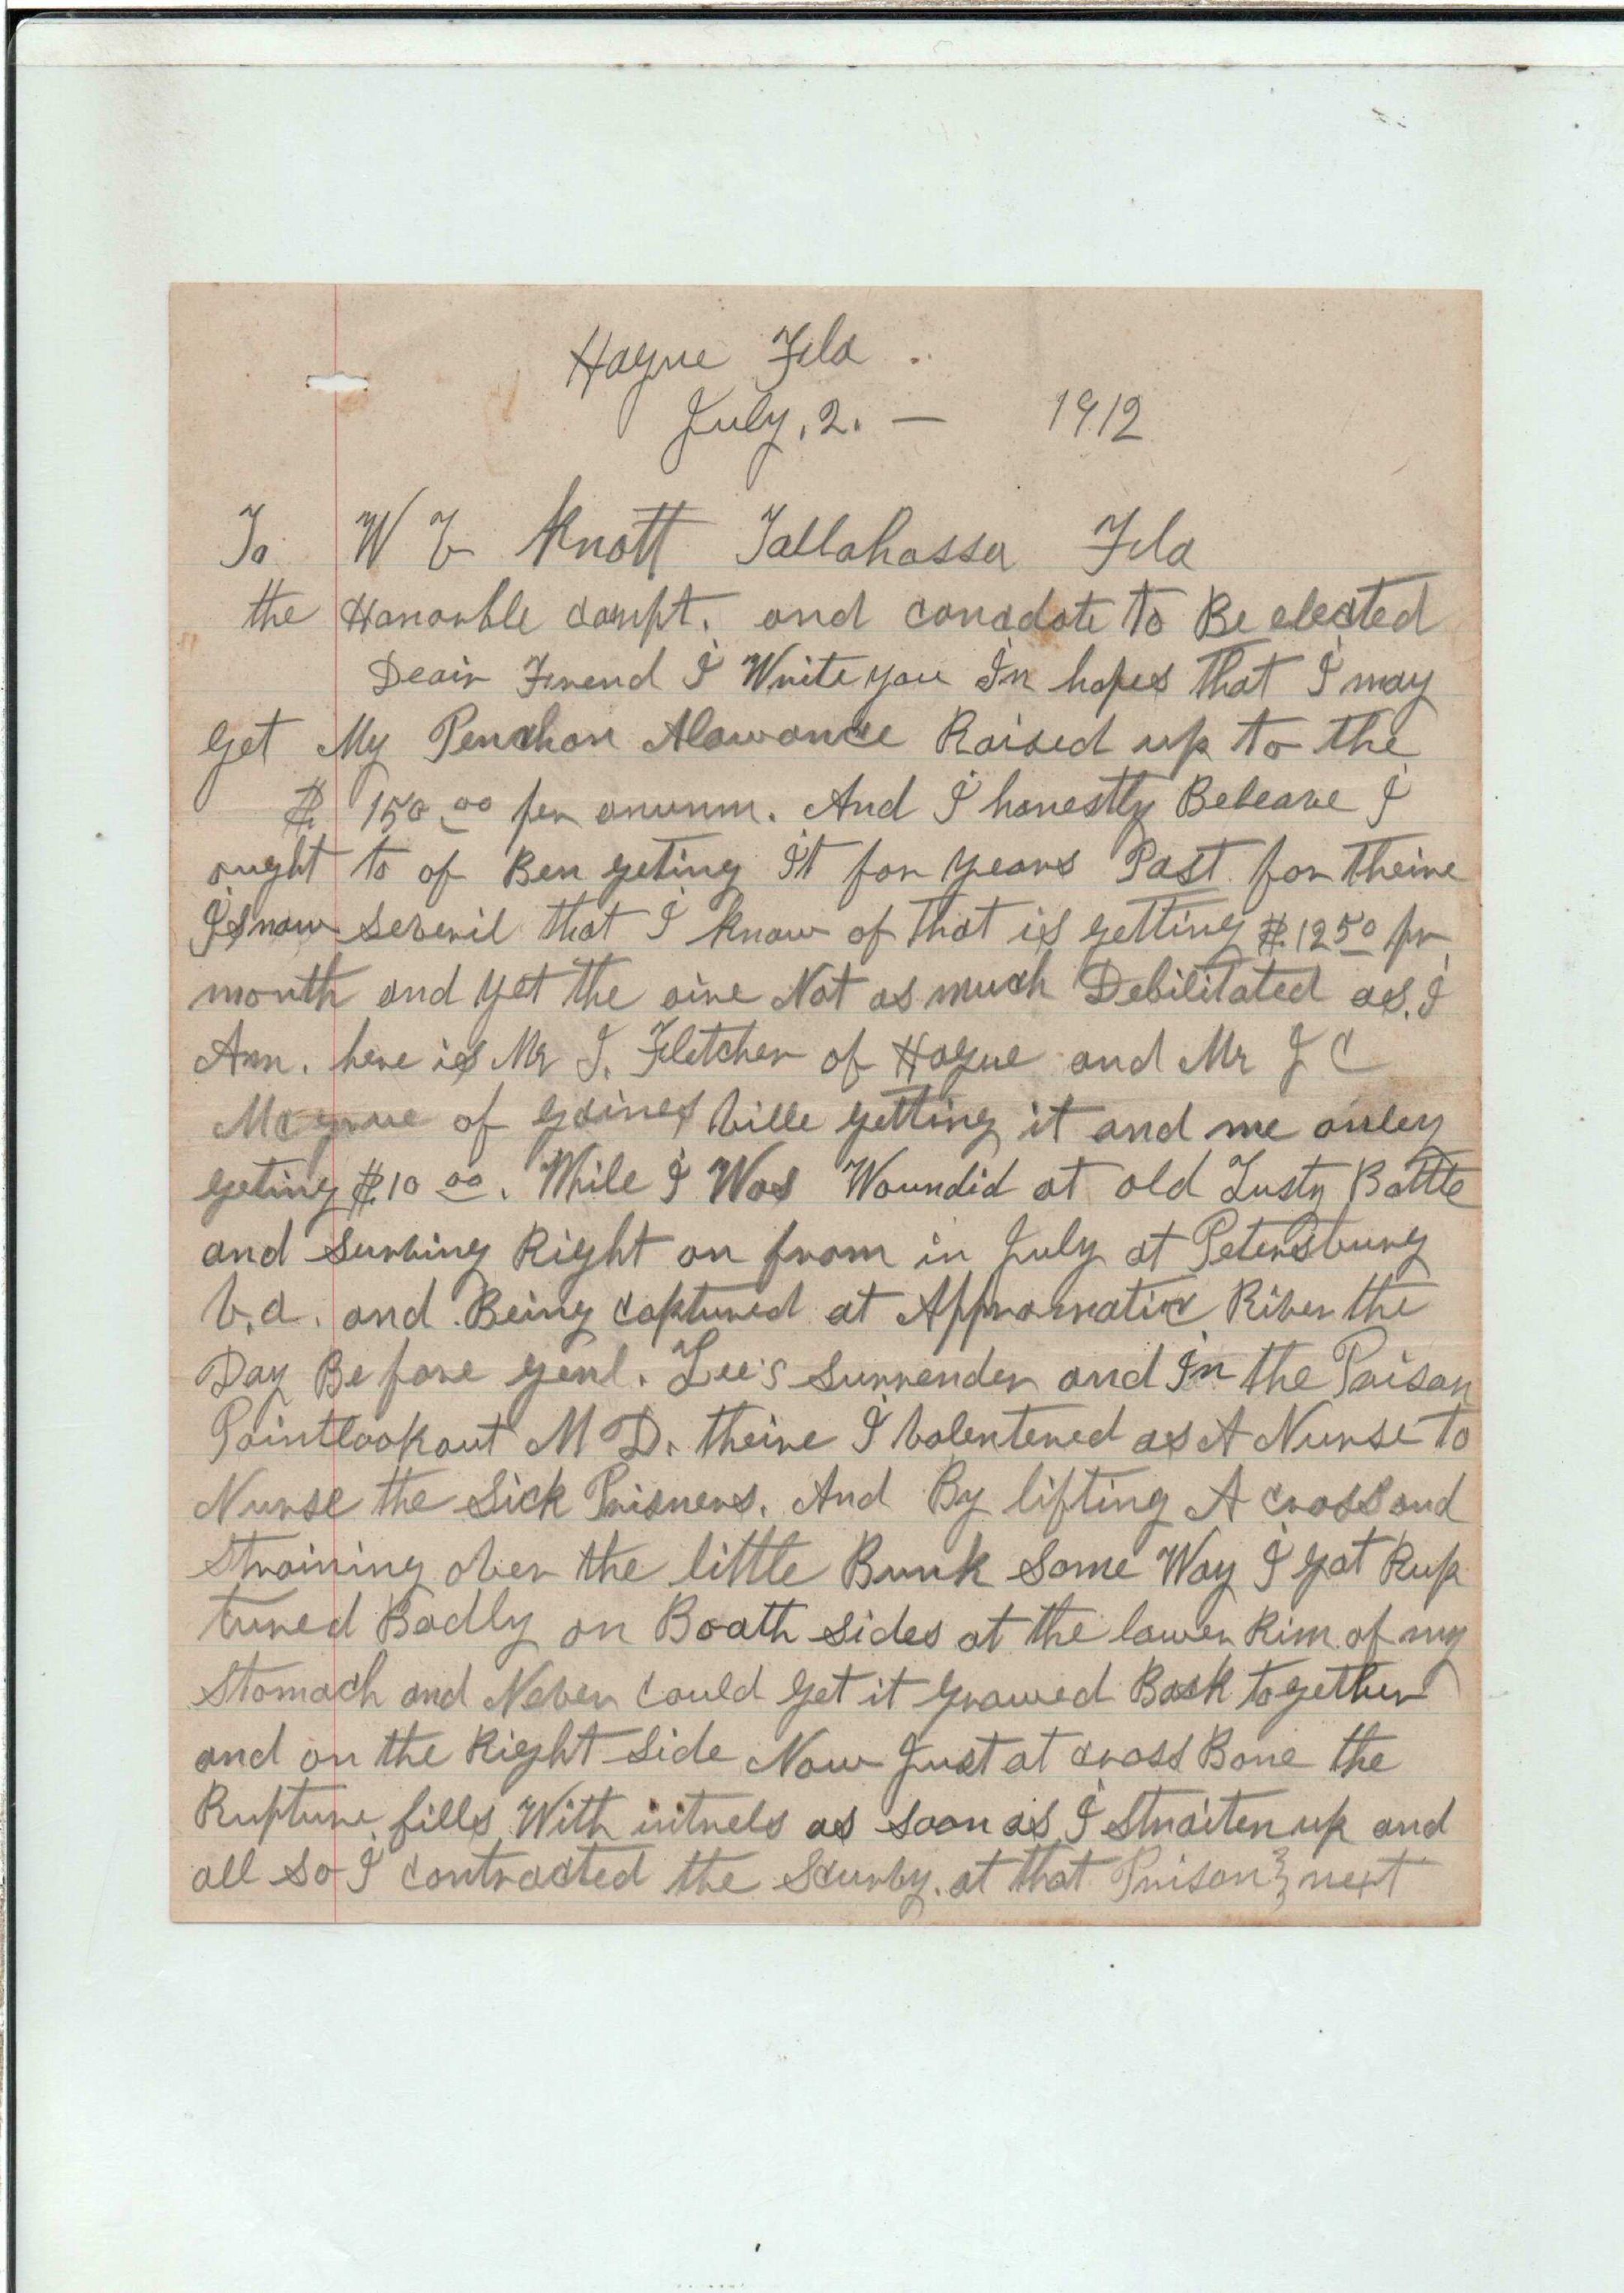 Hague Fla
July, 2. — 1912
To W V Knott Tallahassa Fla
the Honorble compt. and canadate to Be elected
Deair Frend I Write you In hopes that I may
get My Penchon Alowance Raised up to the
$ 150.00 per anunm. And I honestly Beleave I
ought to of Ben geting It for years Past. for theire
Is now Severil that I know of that is getting $.12 50 pr
month and yet the aire Not as much Debilitated as. I
Am. here is Mr J. Fletcher of Hague and Mr J C
of gainesville getting it and me onley
geting $.10 00. While I Was Woundid at old Lusty Battle
and Surving Right on from in July at Petersburg
V.a. and Being captured at Appromatic River the
Day Before Genl. Lee's Surrender and In the Prison
Pointlookout M D. theire I volentered as A Nurse to
Nurse the Sick Prisners. And By lifting A cross and
Straining over the little Bunk Some Way I got Rup
tured Badly on Boath Sides at the lower Rim of my
Stomach and Never Could get it growed Back together
and on the Right Side Now Just at cross Bone the
Rupture fills With as soon as I Straiten up and
all so I contracted the Scurvy. at that Prison next